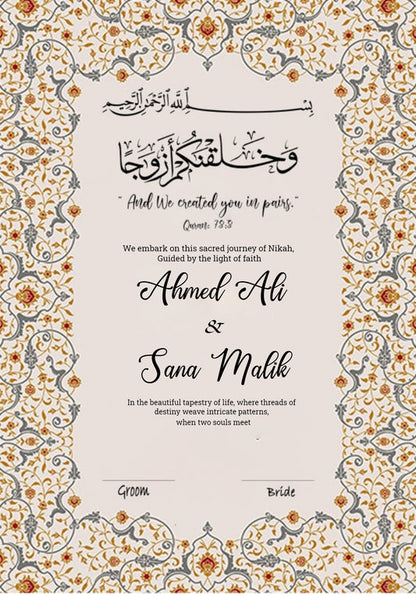 بِسْــــــمِ ٱللَّهِ ٱلرَّحْمَٰنِ ٱلرَّحِيمِ
وَخَلَقْنَٰكُمْ أَزْوَٰجًا
" And We created you in pairs."
Quran: 78:8
We embark on this sacred journey of Nikah,
Guided by the light of faith
Ahmed Ali
&
Sana Malik
In the beautiful tapestry of life, where threads of
destiny weave intricate patterns,
when two souls meet
Groom
Bride